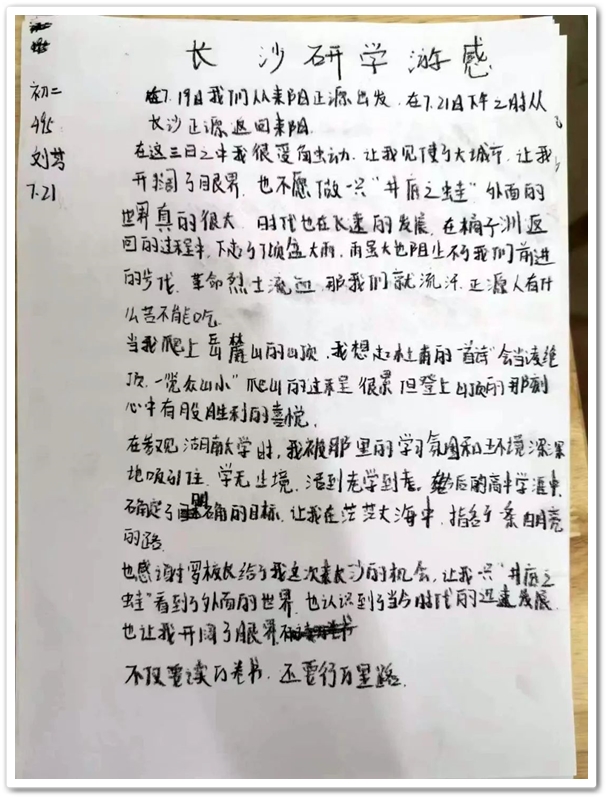 长沙研学游感
初二
495
刘芳
7.21
在7.19日我们从耒阳正源出发，在7.21日下午2时从
长沙正源返回耒阳。
在这三日之中我很受触动，让我见使了大城市，让我
开阔了眼界，也不愿做一只“井底之蛙”外面的
世界真的很大，时代也在飞速的发展，在橘子洲返
回的过程中，下起了倾盆大雨，雨虽大也阻止不了我们前进
的步伐，革命烈士流血，那我们就流汗，正源人有什
么苦不能吃。
当我爬上岳麓山的山顶，我想起杜甫的一首诗“会当凌绝
顶，一览众山小”爬山的过程很累但登上山顶的那刻
心中有股胜利的喜悦。
在参观湖南大学时，我被那里的学习氛围和环境深深
地吸引住，学无止境，活到老学到老，后的高中学涯中，
确定了明确的目标，让我在茫茫大海中，指名了一条明亮
的路。
也感谢罗校长给了我这次来长沙的机会，让我一只“井底之
蛙”看到了外面的世界，也认识到了当今时代的迅速发展，
也让我开阔了眼界，
不仅要读万卷书，还要行万里路。